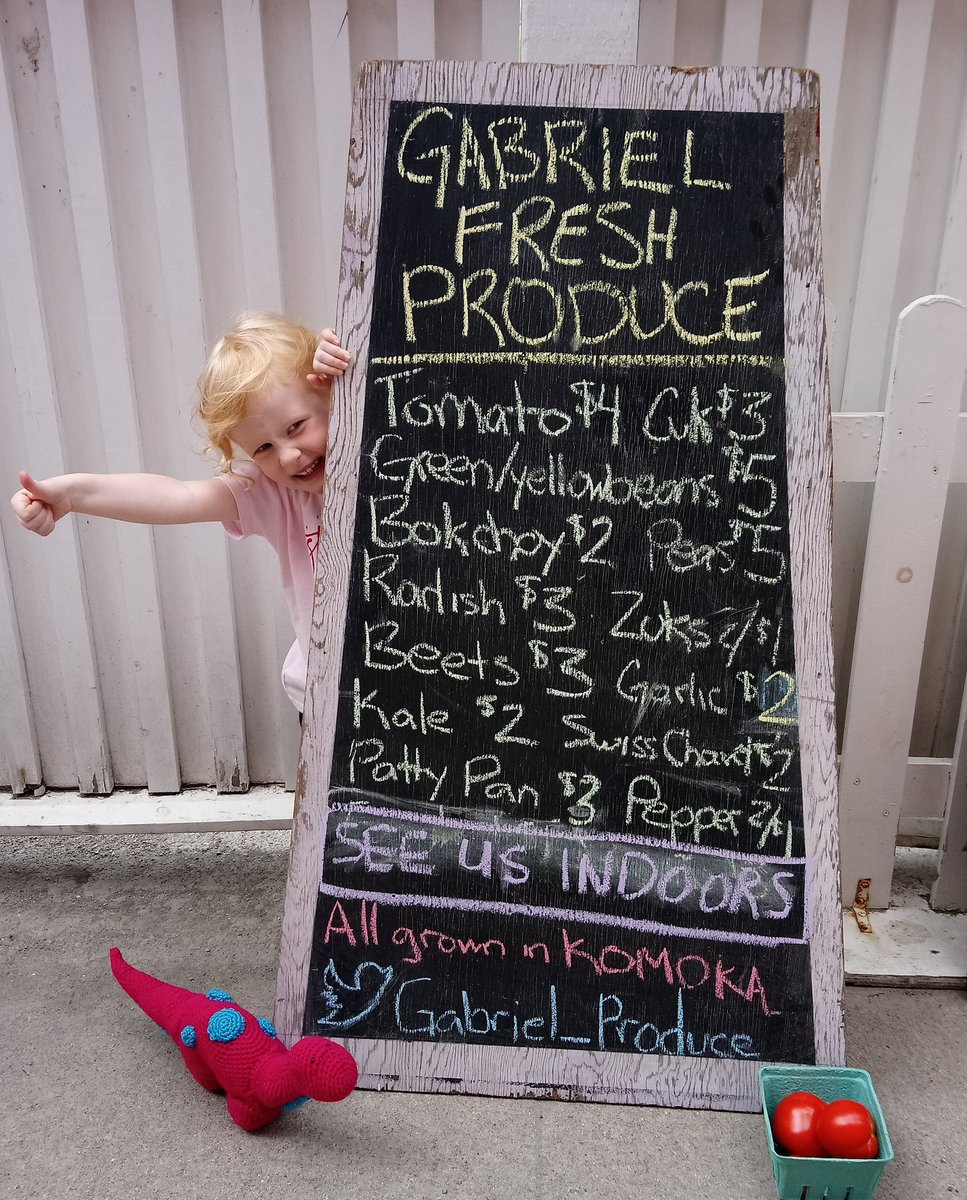 GABRIEL
FRESH
PRODUCE
Tomato $4 Cuk $3
Green/yellow beans $5
Bokchoy $2 Peas $5
Radish $3 Zuks 2/$1
Beets $3 Garlic $2
Kale $2 Swiss Chard $2
Patty Pan $3 Pepper 2/$1
SEE US INDOORS
All grown n KOMOKA
Gabriel_Produce